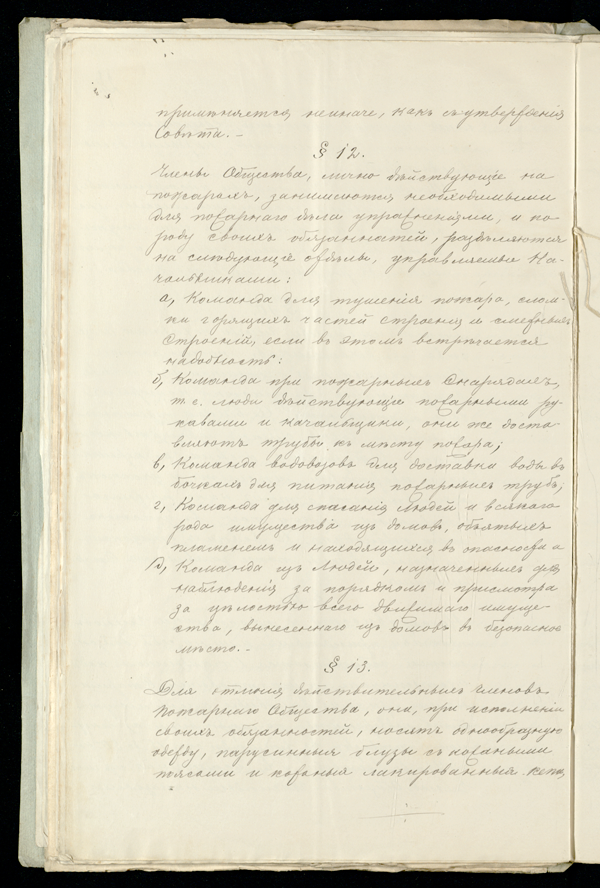 примѣняется неиначе, какъ съ утвержденія
Совѣта. –
§ 12.
Члены Общества, лично дѣйствующіе на
пожарахъ, занимаются необходимыми
для пожарнаго дѣла упражненіями, и по
роду своихъ обязанностей, раздѣляются
на слѣдующіе отдѣлы, управляемые На-
чальниками:
а, Команда для тушенія пожара, слом-
ки горящихъ частей строенія и смежныхъ
строеній, если въ этомъ встрѣчается
надобность:
б, Команда при пожарныхъ снарядахъ,
т. е. люди дѣйствующіе пожарными ру-
кавами и качальщики, они же доста
вляютъ трубы къ мѣсту пожара;
в, Команда водовозовъ для доставки воды въ
бочкахъ для питанія пожарныхъ трубъ;
г, Команда для спасанія людей и всякаго
рода имущества изъ домовъ, объятыхъ
пламенемъ и находящихся въ опасности и
д, Команда изъ людей, назначенныхъ для
наблюденія за порядкомъ и присмотра
за цѣлостью всего движимаго имуще-
ства, вынесеннаго изъ домовъ въ безопасное
мѣсто. –
§ 13.
Для отличія дѣйствительныхъ членовъ
Пожарнаго Общества, они, при исполненіи
своихъ обязанностей, носятъ однообразную
одежду, парусинныя блузы съ кожаными
поясами и кожаныя лакированныя кепи,